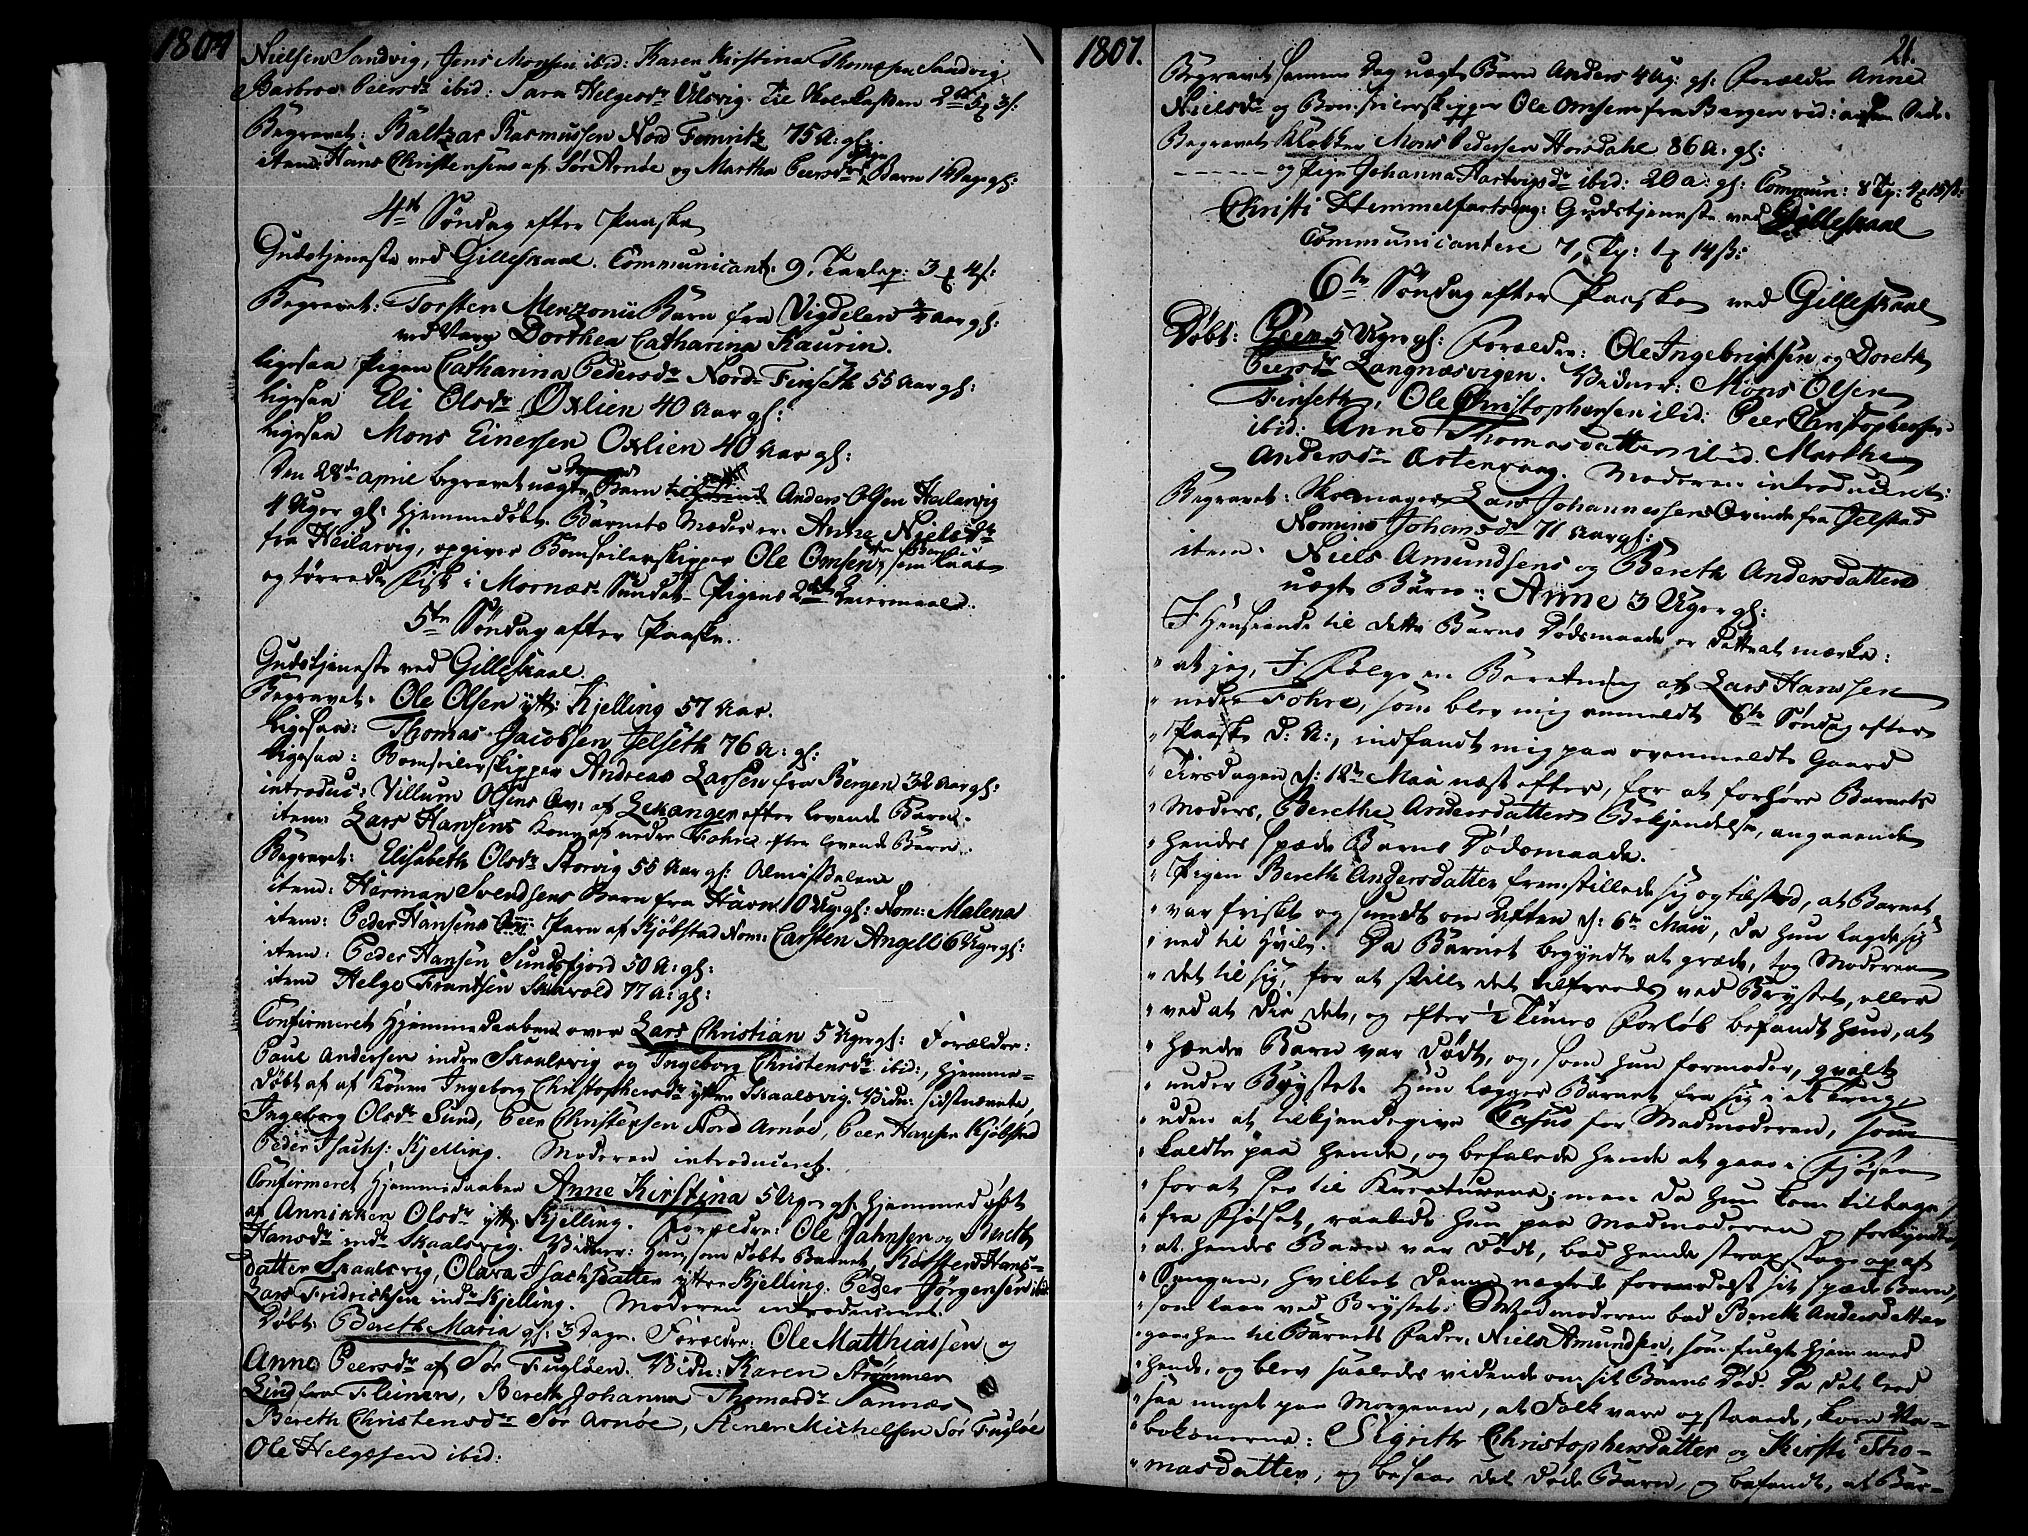 1807
Nielsen Sandvig, Jens Monsen ibid: Karen Kirstina Thomæsen Sandvig
Barbroe Peersdr ibid: Sara Helgesdr Ulsvig. til
Begravet: Baltzar Rasmussen Nord Femritz 75 A: gl:
item: Hans Christensens af Sør Arnøe og Martha Peersdrs Barn 14 Dage gl:
4de Søndag efter Paaske
Gudstjeneste ved Gilleskaal. Communicant: 9, Tavlep: 3 4 s:
Begravet: Torsten Menzonii Barn fra Vigdelen 3/4 Aar gl:
ved Navn Dorthea Catharina Kaurin.
ligesaa Pigen Catharina Pedersdr Nord-Finseth 55 Aar gl:
ligesaa Eli Olsdr Oxlien 40 Aar gl:
ligesaa Mons Einersen Oxlien 40 Aar gl:
Den 28de April begravet uægte Barn Anders Olsen Heilarvig
4 Uger gl: hjemmedøbt. Barnets Moder er: Anne Nielsdr
fra Heilarvig, opgiver Bomseilerskipper Ole Omsen, som laae
og tørrede Fisk i Mornæs-Sundet. Pigens 2det Leiermaal.
5te Søndag efter Paaske.
Gudstjeneste ved Gilleskaal.
Begravet: Ole Olsen ytt: Kjelling 57 Aar.
ligesaa: Thomas Jacobsen Jelseth 76 A: gl:
ligesaa: Bomseilerskipper Andreas Larsen fra Bergen 32 Aar gl:
introduc: Villum Olsens Qv: af Lekanger efter levende Barn.
item: Lars Hansens Kone af nedre Fohre efter levende Barn.
Begravet: Elisabeth Olsdr Storvig 55 Aar gl: Almisselem
item: Herman Svendsens Barn fra Havn 10 Ug: gl: Nom: Malena
item: Peder Hansens Barn af Kjøbstad Nom: Carsten Angell 6 Uger gl:
item: Peder Hansen Sundsfjord 50 A: gl:
item Helge Frantsen Skavold 77 A: gl:
Confirmeret Hjemmedaaben over Lars Christian 5 Uger gl: Forældre:
Paul Andersen indre Skaalsvig og Ingeborg Christensdr ibid:, hjemme-
døbt af af Konen Ingeborg Christophersdr yttre Skaalsvig. Vidn: sidstnævnte,
Ingeborg Olsdr Sund, Peer Christensen Nord Arnøe, Peer Hansen Kjøbstad
Peder Isachs: Kjelling. Moderen introduceret.
Confirmeret Hjemmedaaben Anne Kirstina 5 Uger gl: hjemmedøbt
af Annikken Olsdr ytt: Kjelling. Forældre: Ole Jahnsen og Bereth
Hansdr indr Skaalsvig. Vidner: Hun som døbte Barnet, Kirsten Hans-
datter Skaalsvig, Olava Isachsdatter yttre Kjelling. Peder Jørgensen ibid:
Lars Fridrichsen indr Kjelling. Moderen introduceret.
Døbt: Bereth Maria gl: 3 Dage. Forældre: Ole Matthiassen og
Anne Peersdr af Sør Fugløen. Vidn: Karen Strømmer
Lind fra Fleinen, Bereth Johanna Thomasdr Sannæs
Bereth Christensdr Sør Arnøe, Abner Michelsen Sør Fugløe
Ole Helgesen ibid:
1807.
21.
Begravet samme Dag uægte Barn Anders 4 Ug: gl: Forældre Anne
Nielsdr og Bomseilerskipper Ole Omsen fra Bergen
Begravet Klokker Mons Pedersen Horsdahl 86 A: gl:
og Pige Johanna Hartvigsdr ibid: 20 A: gl: Commun: 8 Tp: 4 15 ß:
Christi Himmelfartsdag: Gudstjeneste ved Gilleskaal
Communicantere 7, Tp: 1 14 ß:
6te Søndag efter Paaske ved Gilleskaal
Døbt: Peer 5 Uger gl: Forældre: Ole Ingebrigtsen og Doreth
Peersdr Langnæsvigen. Vidner: Mons Olsen
Finseth, Ole Christophersen ibid: Peer Christophersen
ibid: Anne Thomasdatter ibid. Marthe
Andersdr Ostenvaag. Moderen introduceret:
Begravet: Skomager Lars Johannessens Qvinde fra Jelstad
Nomine Johansdr 71 Aar gl:
item: Niels Amundsens og Bereth Andersdatters
uægte Barn: Anne 3 Uger gl:
I Henseende til dette Barns Dødsmaade er dette at mærke:
" at jeg, I Følge en Beretning af Lars Hanssen
" nedre Fohre, som blev mig anmeldt 6te Søndag efter
" Paaske d: A:, indfandt mig paa ovenmeldte Gaard
" Tirsdagen d: 12te Maii næst efter, for at forhøre Barnets
" Moders, Berethe Andersdatters Bekjendelse, angaaende
" hendes spæde Barns Dødsmaade.
" Pigen Bereth Andersdatter fremstillede sig og tilstod, at Barnet
" var friskt og sundt om Aften d: 6te Maii, da hun lagde sig
" ned til Hvile. Da Barnet begyndte at græde, tog Moderen
" det til sig, for at stille det tilfreds ved Brystet, eller
" ved at die det, og efter 1/2 Times Forløb befandt hun, at
" hendes Barn var dødt, og, som hun formoder, qvalt
" under Brystet. Hun lægger Barnet fra sig i et Trug,
" uden at tilkjendegive Casus for Madmoderen, som
" kaldte paa hende, og befalede hende at gaae i Fjøsen
" for at see til Kreaturene; men da hun kom tilbage
" fra Fjøset, raabte hun paa Madmoderen og forkyndte,
" at hendes Barn var dødt, bad hende strax staae op af
" Sengen, hvilket denne nægtede formedelst sit spæde Barn,
" som laae ved Brystet. Madmoderen bad Bereth Andersdatter
" gaae hen til Barnets Fader, Niels Amundsen, som fulgte hjem med
" hende, og blev saaledes vidende om sit Barns Død. Da det leed
" saa meget paa Morgenen, at Folk vare opstaaede, kom Na-
" bokonerne: Sigrith Christophersdatter og Kirsti Tho-
" masdatter, og besaae det døde Barn, og befandt, at Bar-